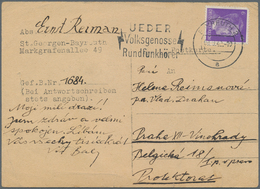 Abs. Emil Reiman
St. Georgen-Bayr. Ostm.
Markgrafenallee 49
JEDER
Volksgenosse
Rundfunkhörer
Gef.B.Nr. 1684.
(Bei Antwortschreiben
stets angeben)
Moji milí drazí!
jsem zdráv a velmi
spokojen. Líbám
Vás všechny
Váš
Helena Reimanová
Praha XII-Vinohrady
Belgická 18/
Protektorat